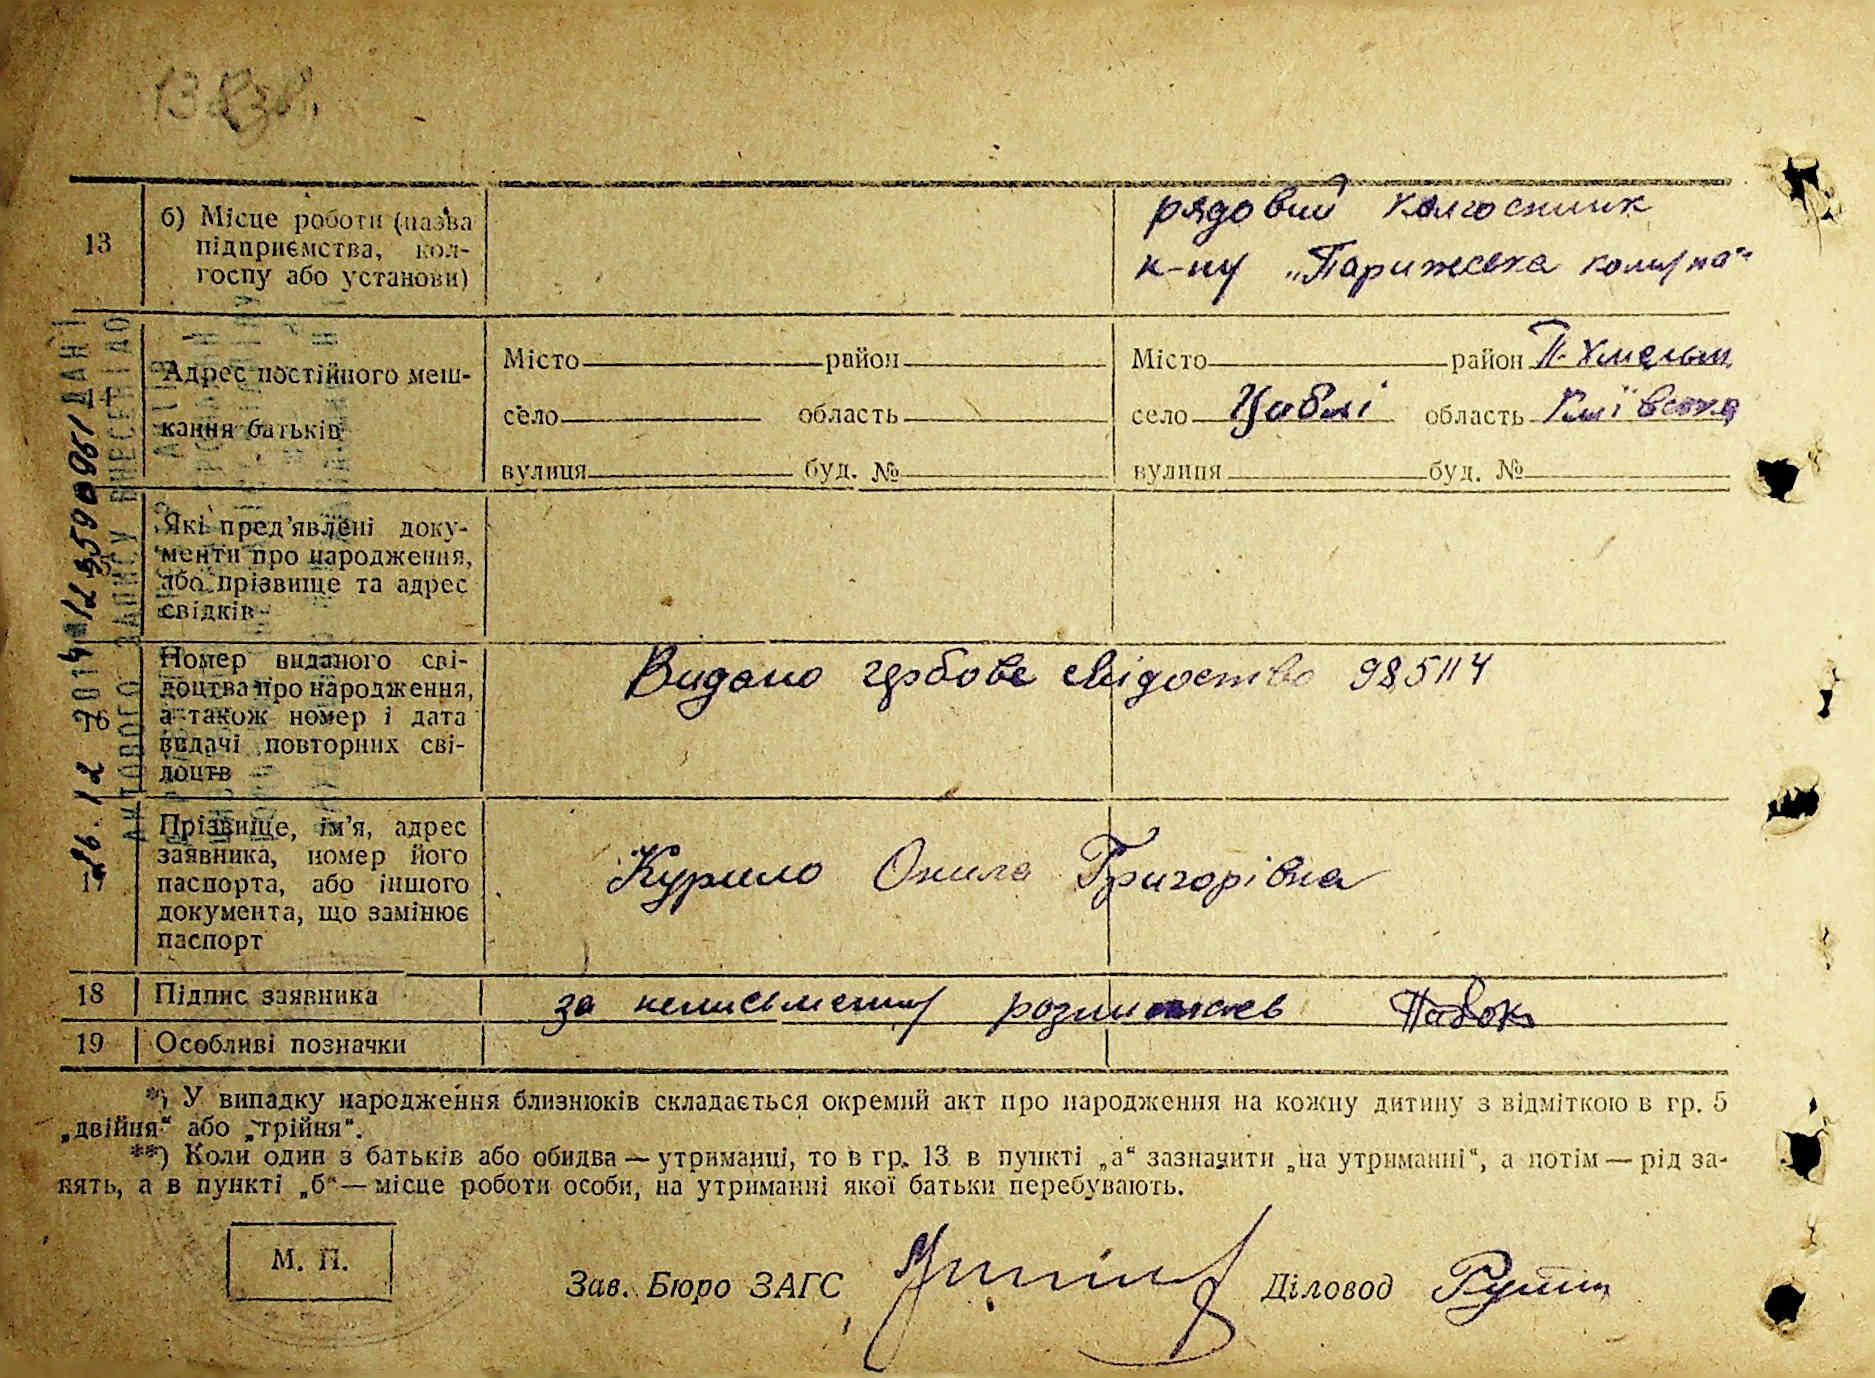 13
б) Місце роботи (назва
підприємства, кол-
госпу або установи)
рядовий колгоспник
к-пу „Парижська комуна“
Адрес постійного меш-
кання батьків
Місто район
село область
вулиця буд. №
Місто район П-Хмельн
село Цаблі область Київська
вулиця буд. №
Які пред'явлені доку-
менти про народження,
або прізвище та адрес
свідків
16
Номер виданого сві-
доцтва про народження,
а також номер і дата
видачі повторних сві-
доцтв
Видано гербове свідоство 985114
17
Прізвище, ім'я, адрес
заявника, номер його
паспорта, або іншого
документа, що замінює
паспорт
Курило Онила Григорівна
18 Підпис заявника
за неписьменну розписався
19 Особливі позначки
*) У випадку народження близнюків складається окремий акт про народження на кожну дитину з відміткою в гр. 5
„двійня“ або „трійня“.
**) Коли один з батьків або обидва — утриманці, то в гр. 13 в пункті „а“ зазначити „на утриманні“, а потім — рід за-
нять, а в пункті „б“ — місце роботи особи, на утриманні якої батьки перебувають.
М. П.
Зав. Бюро ЗАГС Діловод